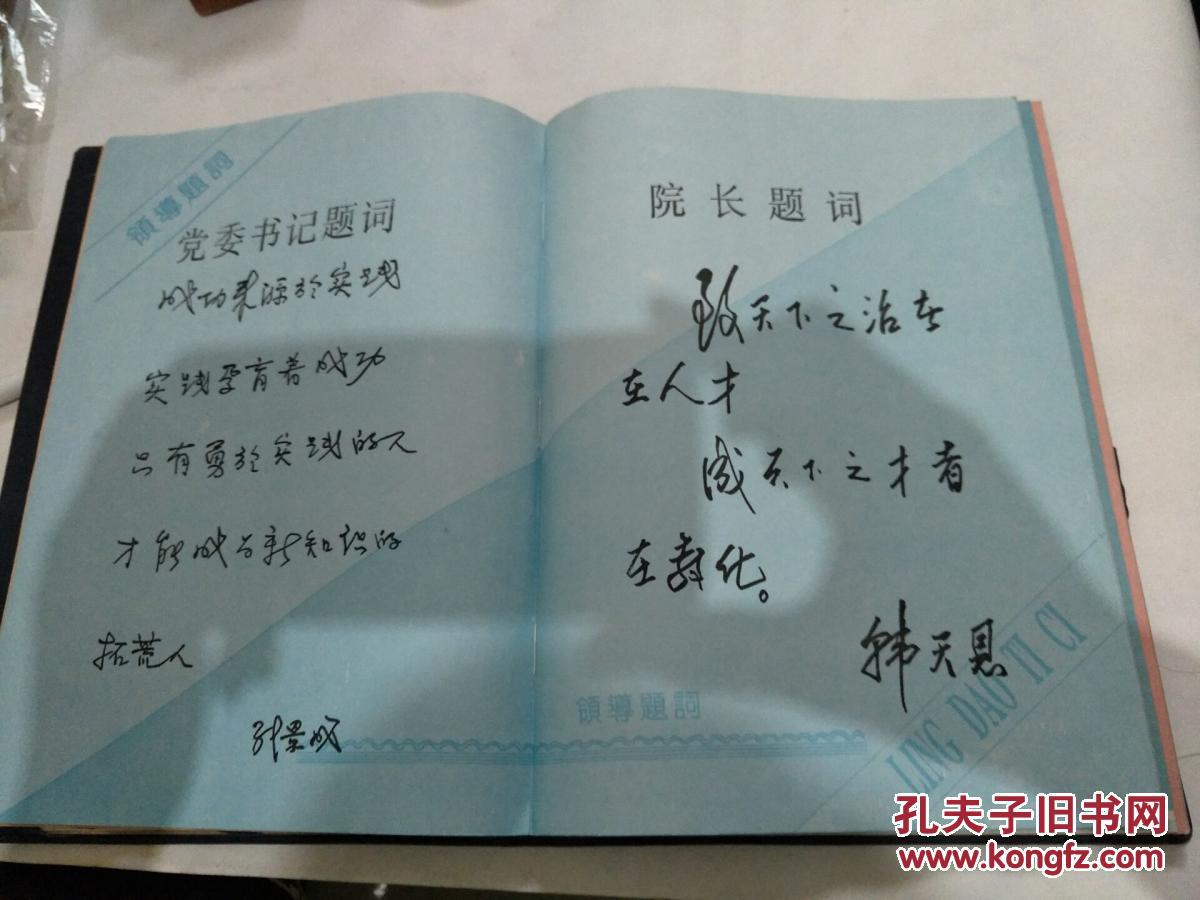 領導題詞
党委书记题词
成功来源於实践
实践孕育着成功
只有勇於实践的人
才能成为新知识的
拓荒人
张景成
院长题词
致天下之治在
在人才
成天下之才者
在教化。
韩天恩
領導題詞
LING DAO TI CI
孔夫子旧书网
www.kongfz.com